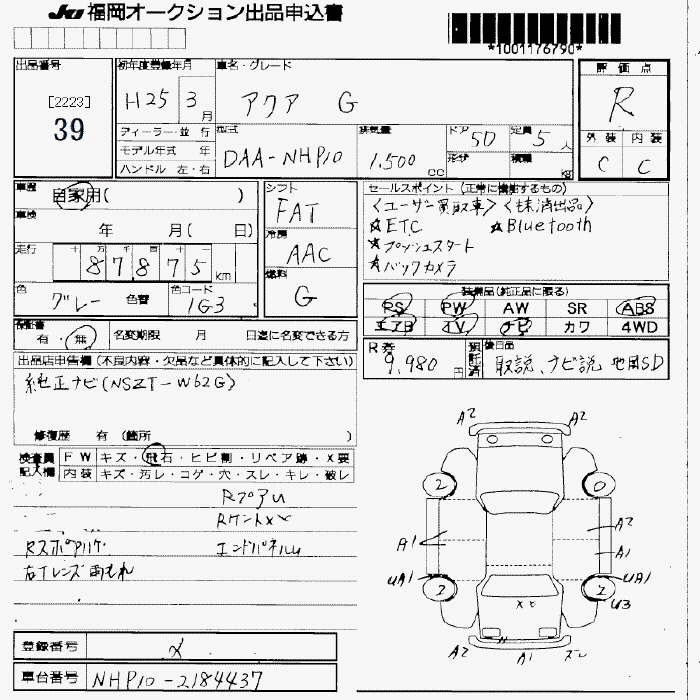 JU 福岡オークション出品申込書
*1001176790*
出品番号
[2223]
39
初年度登録年月
H25 3 月
車名・グレード
アクア G
評価点
R
外装 内装
C C
ディーラー・並行
モデル年式 年
ハンドル 左・右
型式
DAA-NHP10
排気量
1,500 cc
ドア 5D
形状
定員 5 人
積載 kg
車歴
自家用( )
車検
年 月( 日)
走行
十 万 千 百 十
8 7 8 7 5 km
色
グレー
色替
色コード
1G3
シフト
FAT
冷房
AAC
燃料
G
セールスポイント (正常に機能するもの)
<ユーザー買取車> <抹消出品>
☆ETC ☆Bluetooth
☆プッシュスタート
☆バックカメラ
装備品(純正品に限る)
PS PW AW SR ABS
エアB TV ナビ カワ 4WD
保証書
有・無
名変期限 月 日迄に名変できる方
R券
9,980 円
預託済
後日品
取説、ナビ説 地図SD
出品店申告欄 (不良内容・欠品など具体的に記入して下さい)
純正ナビ(NSZT-W62G)
修復歴 有 (箇所 )
検査員記入欄
FW キズ・飛石・ヒビ割・リペア跡・X要
内装 キズ・汚レ・コゲ・穴・スレ・キレ・破レ
RフロアU
エンドパネルU
右Tレンズ
A2 A2
2 0
A1 A2
A1
UA1 UA1
2 2
U3
A2 A1
登録番号
メ
車台番号 NHP10-2184437